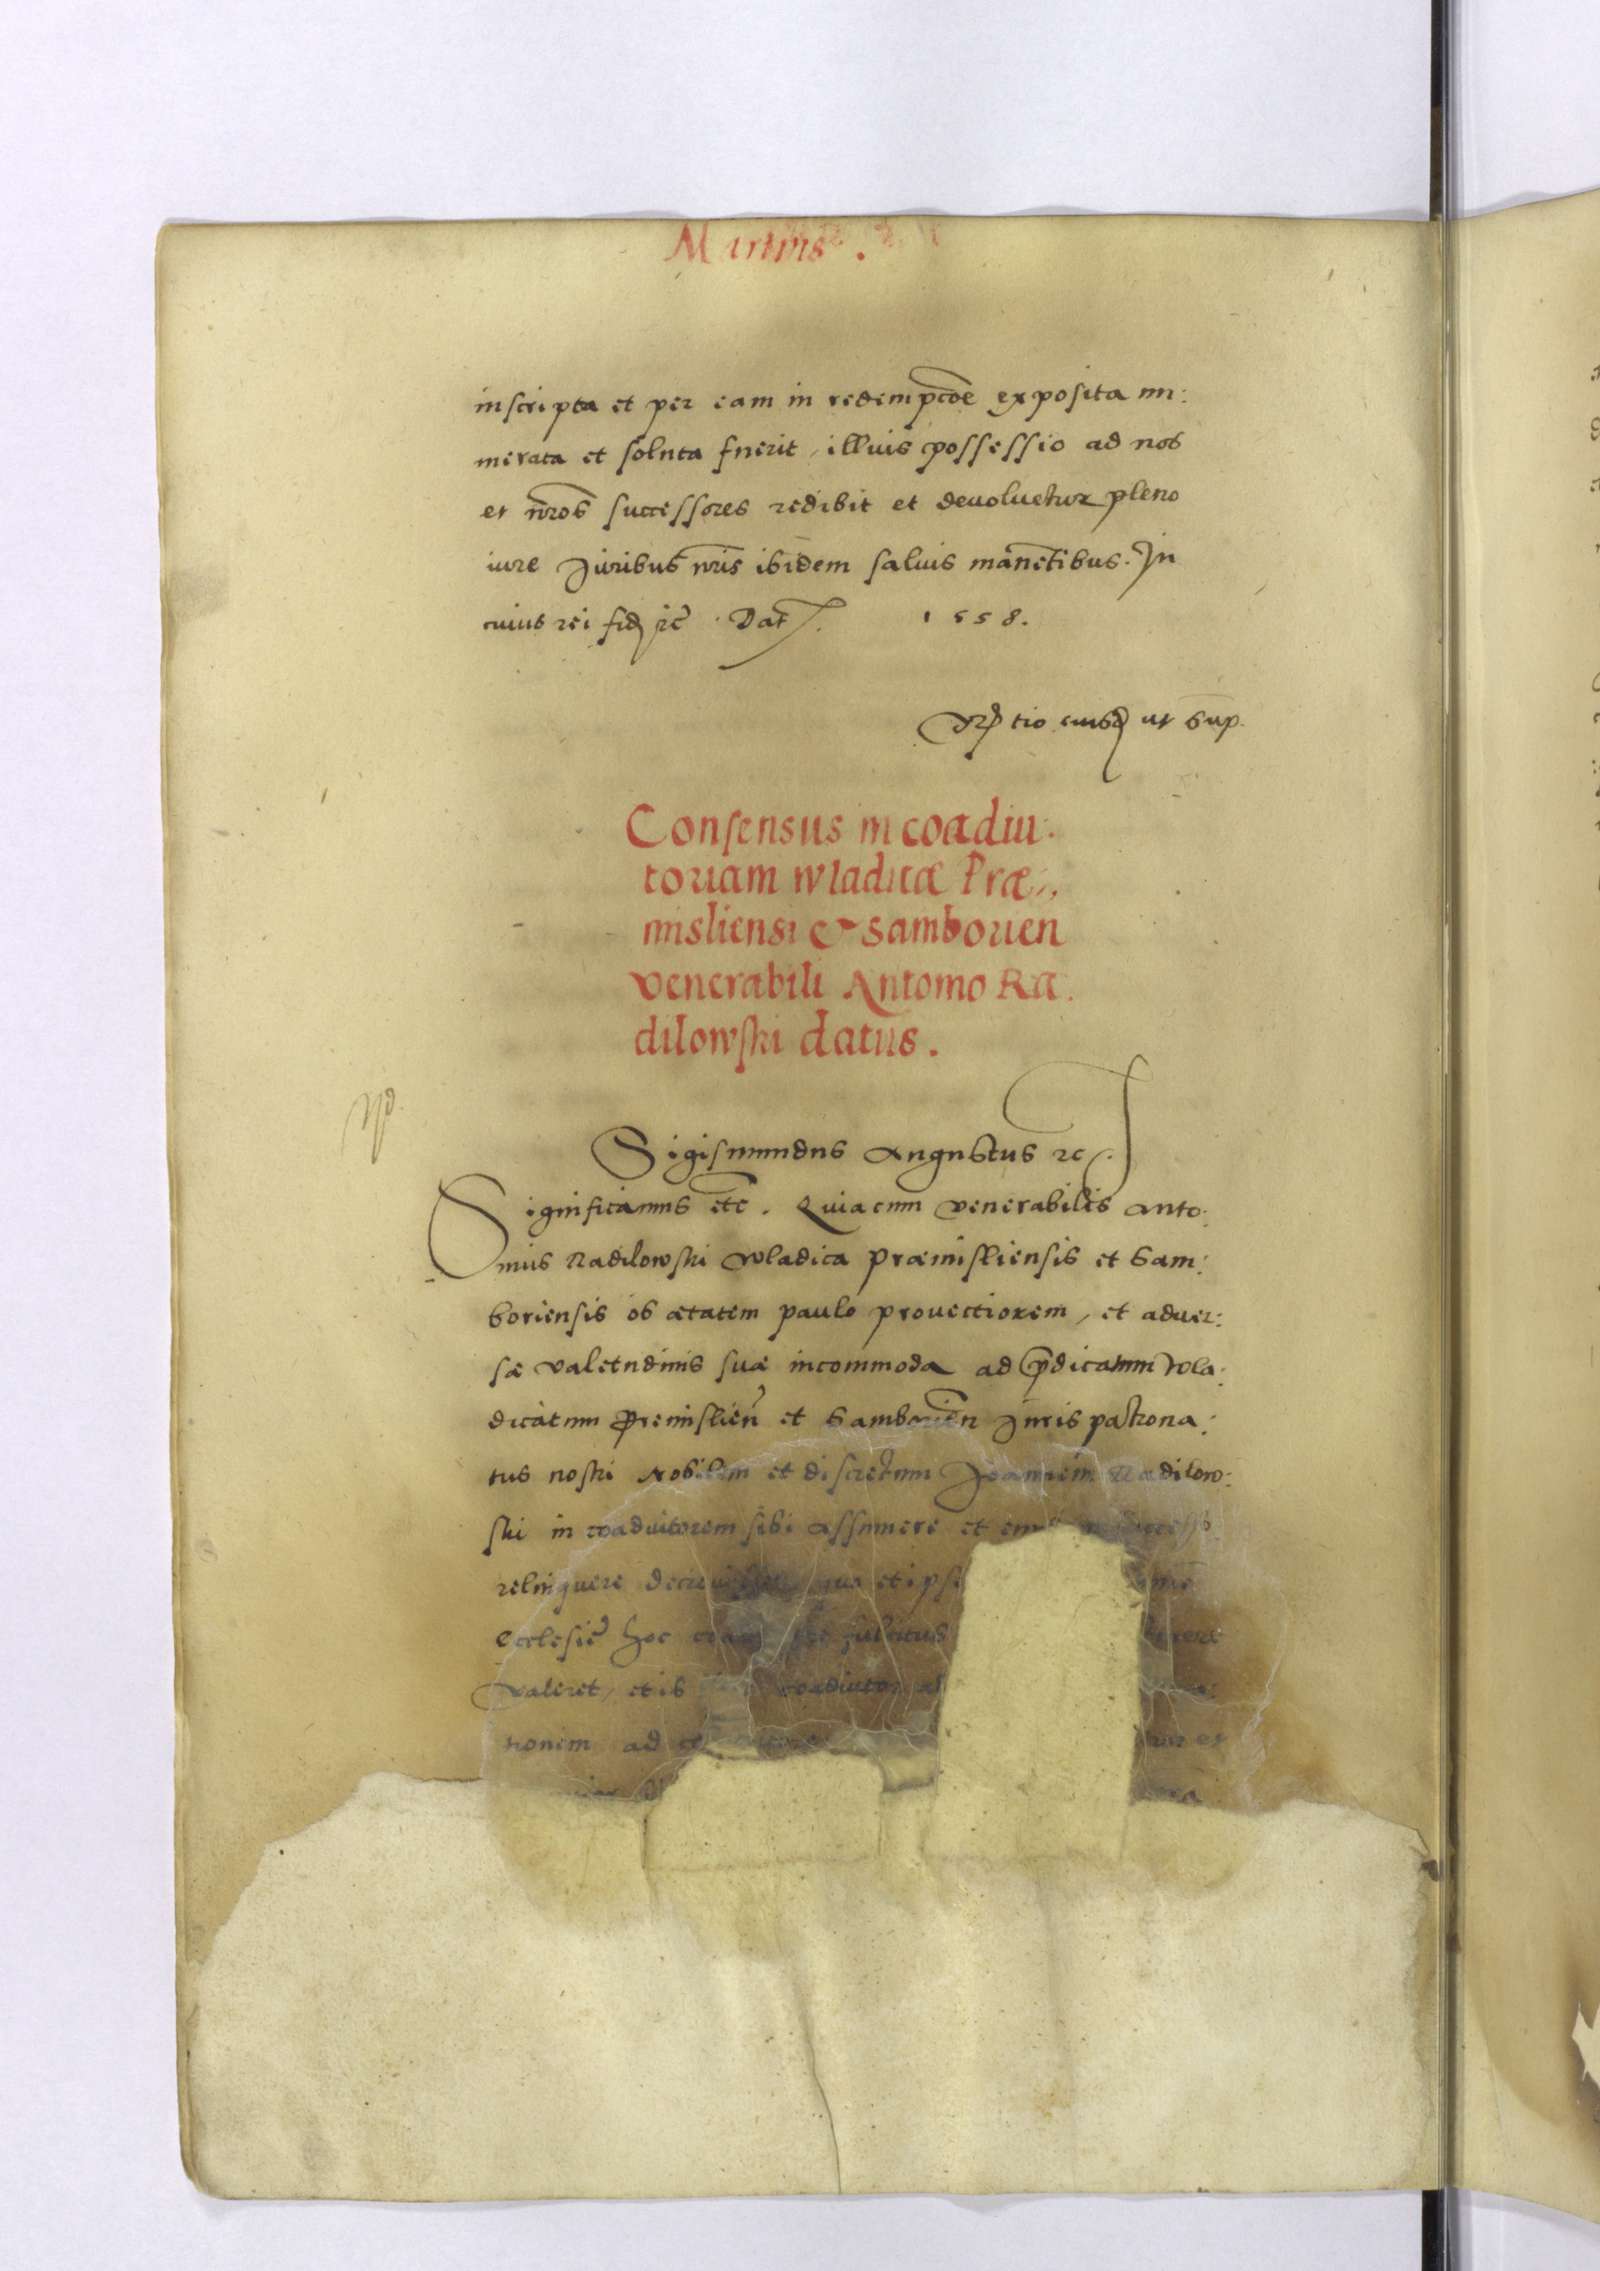 Martius.
inscripta et per eam in redempcõe exposita nu:
merata et soluta fuerit, illius possessio ad nos
et nr̃os successores redibit et devoluetur pleno
iure Juribus nr̃is ibidem salvis manẽtibus. In
cuius rei fidẽ zc̃. Dat̃. 1558.
eiusd ut sup.
Consensus in coadiu:
toriam wladicæ Præ:,
misliensi & Samborien
venerabili Antonio Ra:
dilowski datus.
Sigismundus Augustus zc.
Significamus etc̃. Quia cum venerabilis Anto:
nius Radilowski Wladica præmisliensis et Sam:
boriensis ob ætatem paulo provectiorem, et adver:
sæ valetudinis suæ incommoda ad p̃dicatum Wla:
dicatum Premislieñ et Samborieñ Juris patrona:
tus nostri Nobilem et discretum Joannem Radilow:
ski in coadiutorem sibi assumere et
relinquere et ipse
Ecclesiæ hoc fulcitus
valeret, et is coadiutor
tionem ad et